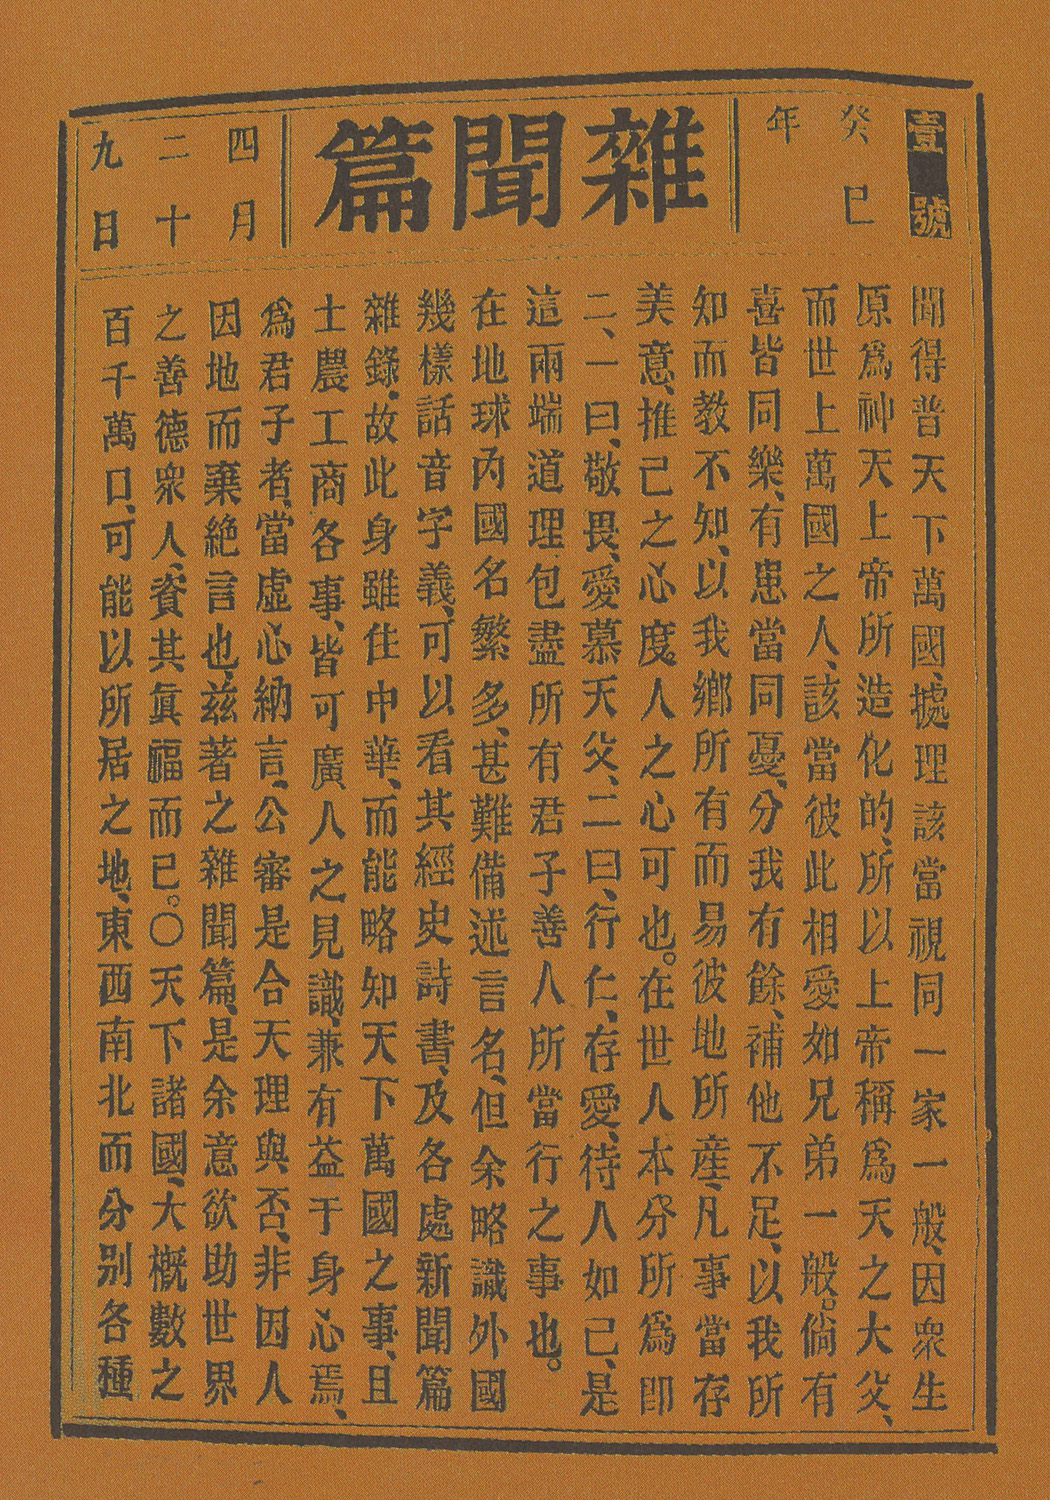 壹號
癸巳
年
雜聞篇
四月
二十
九日
聞得普天下萬國、據理該當視同一家一般、因衆生
原爲神天上帝所造化的、所以上帝稱爲天之大父、
而世上萬國之人、該當彼此相愛如兄弟一般。倘有
喜皆同樂、有患當同憂、分我有餘、補他不足、以我所
知而教不知、以我鄉所有而易彼地所產、凡事當存
美意、推己之心度人之心可也。在世人本分所爲卽
二、一曰、敬畏、愛慕天父、二曰、行仁、存愛、待人如己、是
這兩端道理包盡所有君子善人所當行之事也。
在地球內國名繁多、甚難備述言名、但余略識外國
幾樣話音字義、可以看其經史詩書、及各處新聞篇
雜錄、故此身雖住中華、而能略知天下萬國之事、且
士農工商各事、皆可廣人之見識、兼有益于身心焉、
爲君子者、當虛心納言、公審是合天理與否、非因人
因地而棄絶言也、茲著之雜聞篇、是余意欲助世界
之善德衆人、資其眞福而已。〇天下諸國、大概數之
百千萬口、可能以所居之地、東西南北而分别各種